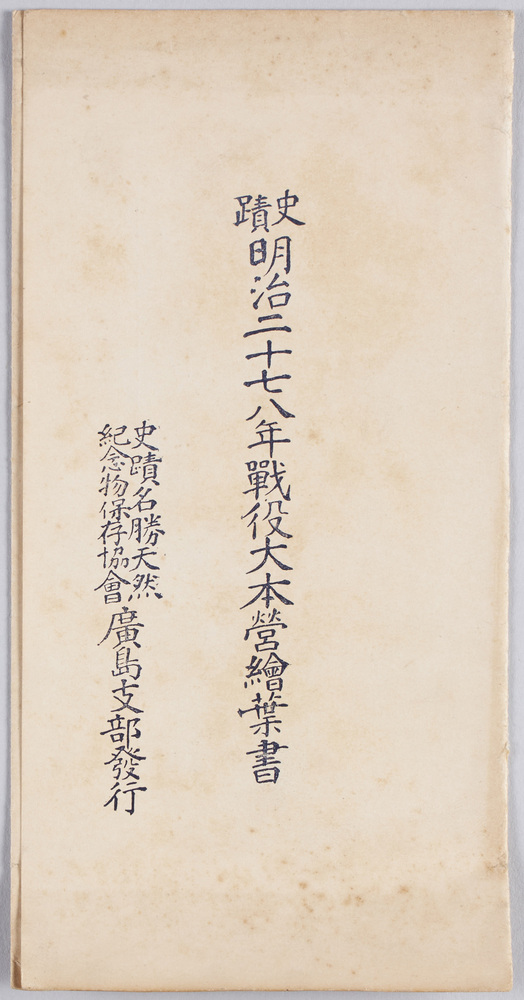 史蹟明治二十七八年戰役大本營繪葉書
史蹟名勝天然
紀念物保存協會
廣島支部發行